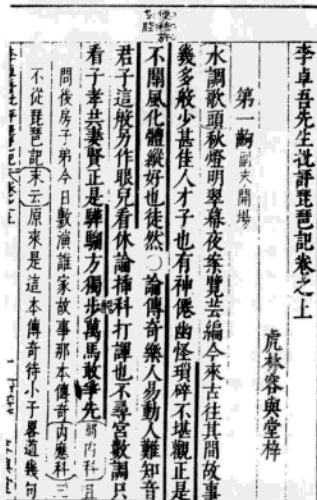 李卓吾先生批評琵琶記卷之上
虎林容與堂梓
第一齣 副末開場
水調歌頭秋燈明翠幕夜案覽芸編今來古往其間故事
幾多般少甚佳人才子也有神僊幽怪瑣碎不堪觀正是
不關風化體縱好也徒然○論傳奇樂人易動人難知音
君子這般另作眼兒看休論插科打諢也不尋宮數調只
看子孝共妻賢正是驊騮方獨步萬馬敢爭先
問後房子弟今日敷演誰家故事那本傳奇內應科三
不從琵琶記末云原來是這本傳奇待小子畧道幾句